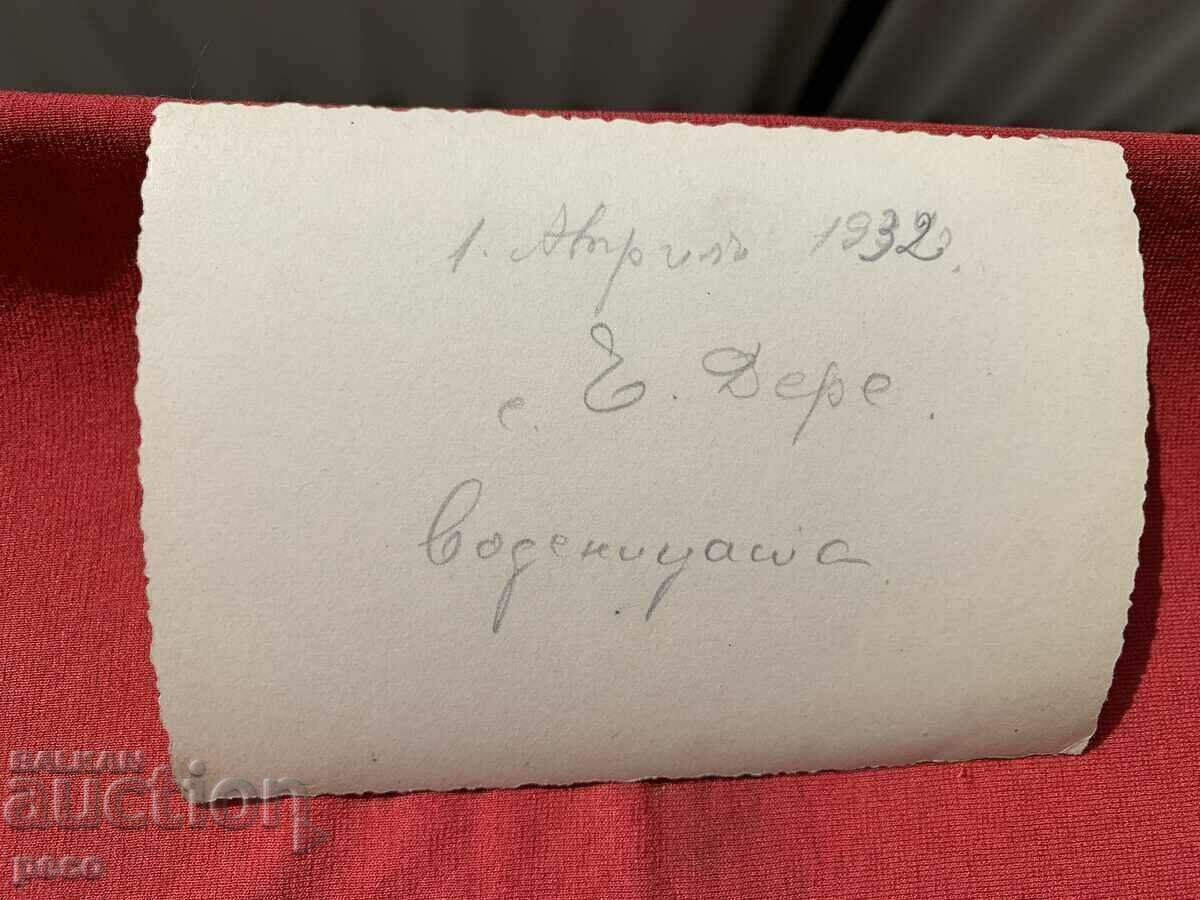 1. Априлъ 1932 г.
с. Е. Дере.
Воденицата
BALKAN
auction
paco